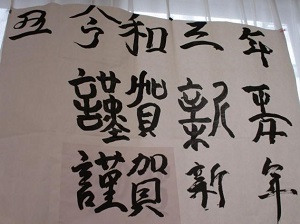 丑 令和三年
謹賀新年
謹賀新年